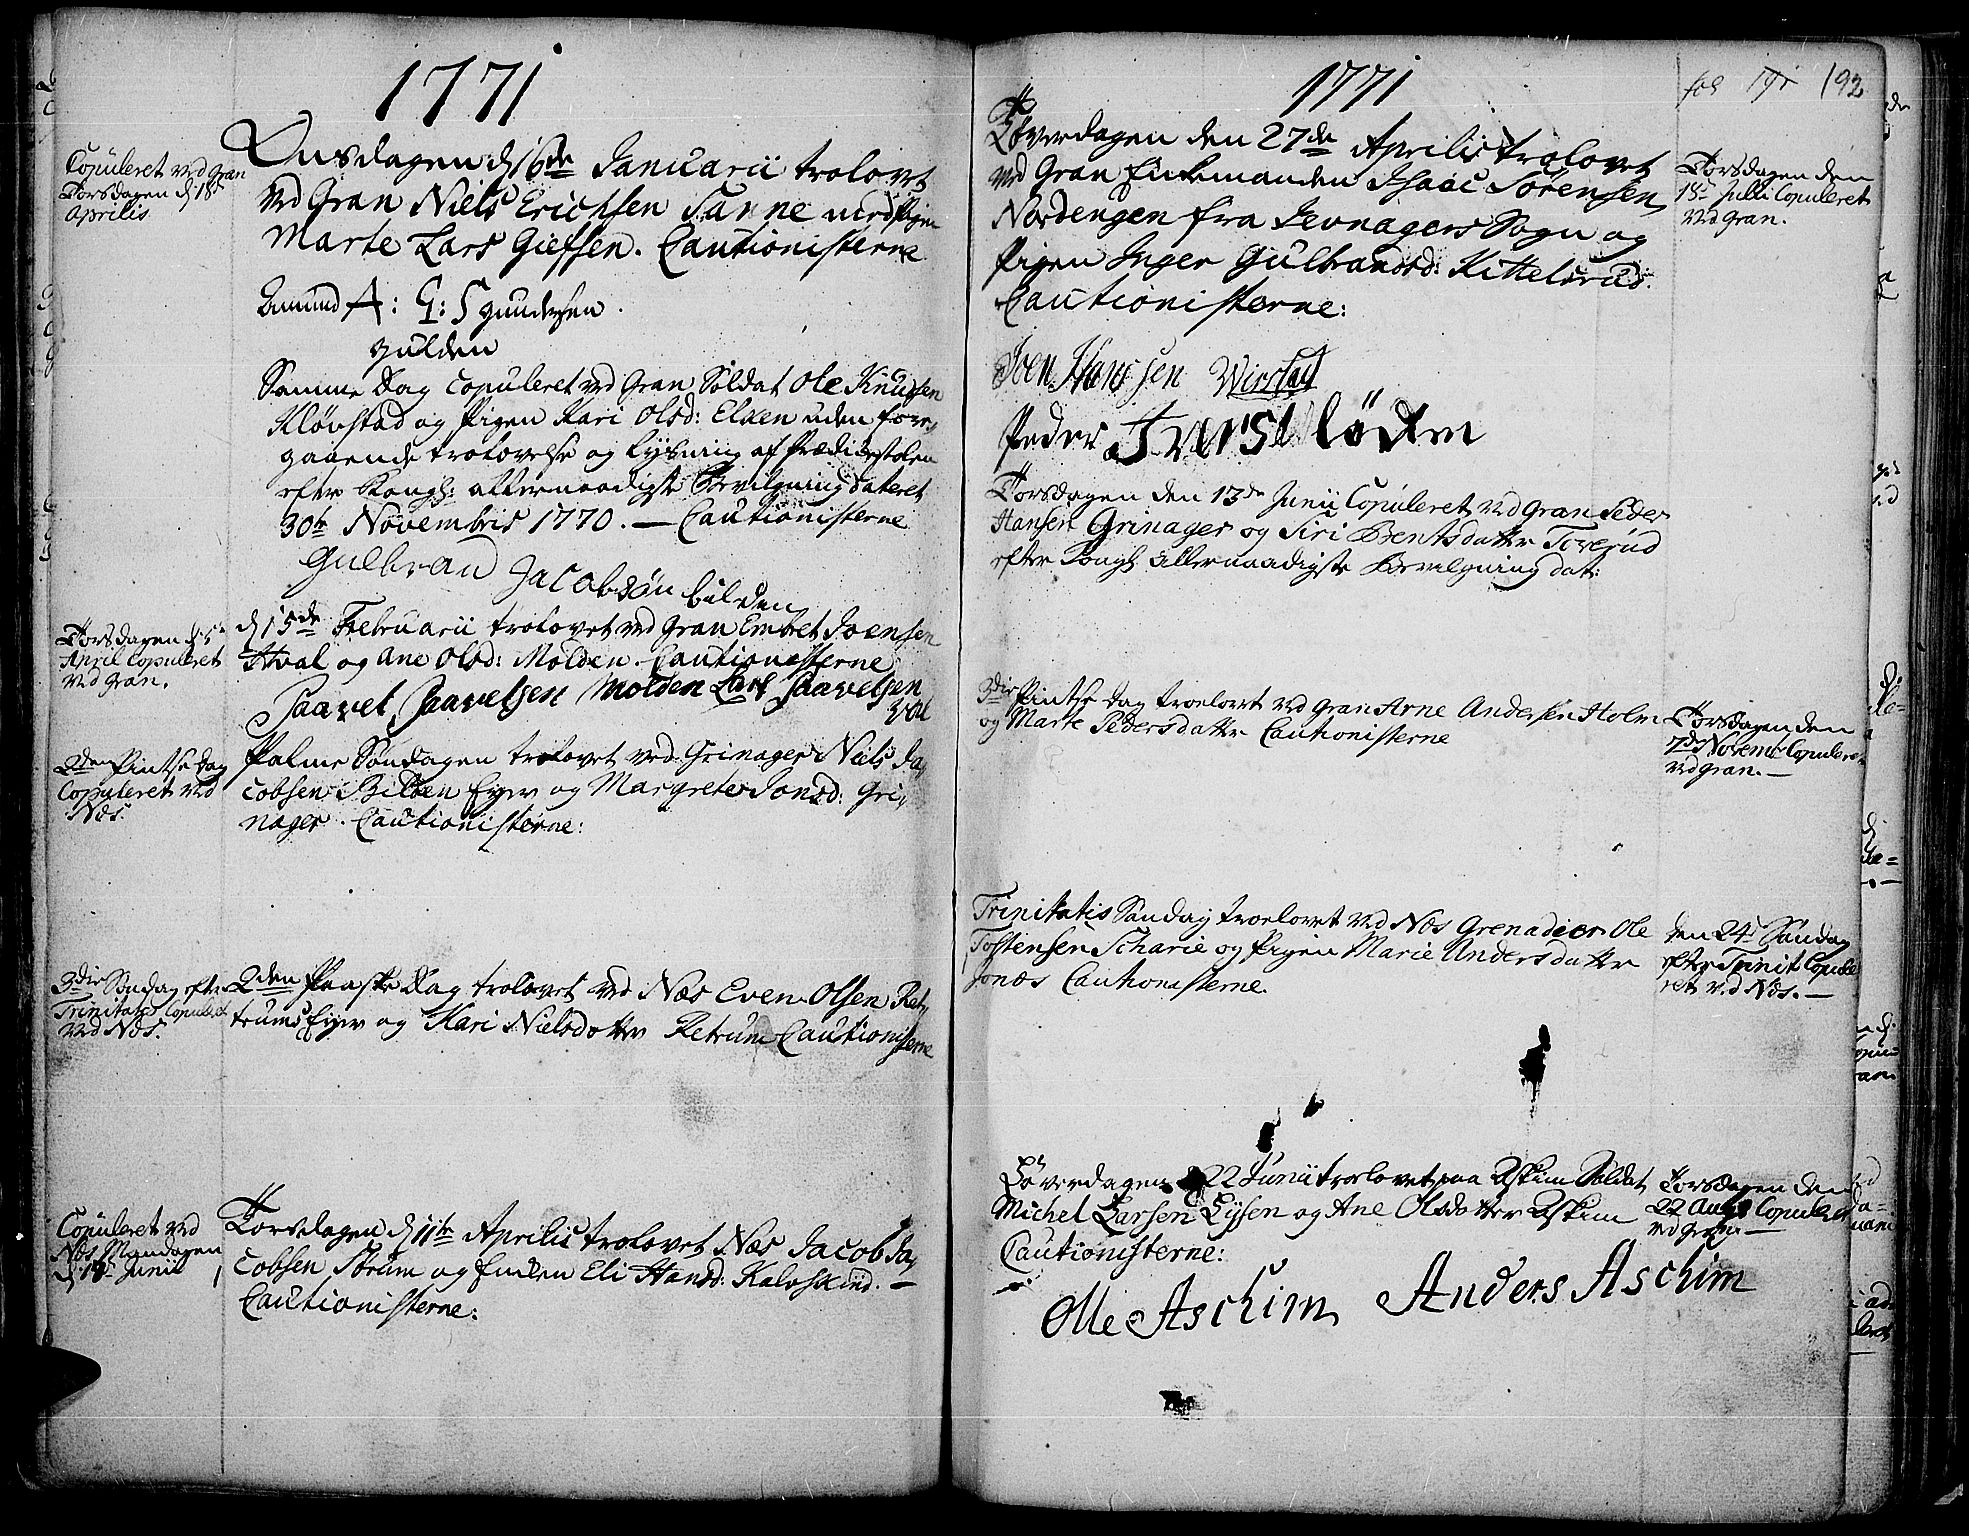 1771
Copuleret ved Gran
Torsdagen d 18
Aprilis
Onsdagen d 16de Januarii trolovet
ved Gran Niels Erichsen Sanne med Pigen
Marte Lars Giefsen. Cautionisterne
Amund A: G: S gundersen
gulden
Samme Dag copuleret ved Gran Soldat Ole Knudsen
Kløvstad og Pigen Kari Olsd: Elken uden fore-
gaaende trolovelse og Lysning af Prædikestolen
efter Kongl: allernaadigste Bevilgning dateret
30te Novembris 1770. — Cautionisterne
Gulbran Jacobsøn bilden
Torsdagen d. 5
April Copuleret
ved Gran.
d 15de Februarii trolovet ved Gran Embret Joensen
Hval og Ane Olsd: Molden. Cautionisterne
Paavel Paavelsen Molden Lars Paavelsen
val
2den Pintse Dag
Copuleret ved
Næs.
Palme Søndagen trolovet ved Grinager Niels Ja-
cobsen Bilden Eyer og Margrete Jonsd: Gri-
nager. Cautionisterne:
3die Søndag efter
Trinitatis Copuleret
ved Næs.
2den Paaske Dag trolovet ved Næs Even Olsen Ret-
trums Eyer og Kari Nielsdatter Retrum Cautionisterne
Copuleret ved
Næs Mandagen
d 18 Junii
Torsdagen d 11te Aprilis trolovet Næs Jacob Ja-
cobsen Strum og Enken Eli Hansd: Kalvskind. —
Cautionisterne:
1771
fol 191 192
Løverdagen den 27de Aprilis trolovet
ved Gran Enkemanden Isaac Sørensen
Nordengen fra Jevnagers Sogn og
Pigen Inger Gulbransd: Kittelsrud.
Cautionisterne:
Torsdagen den
18 Julii Copuleret
ved Gran.
Joen Hanssen Wirstad
Peder Iverse løken
Torsdagen den 13de Junii Copuleret ved Gran Peder
Hansen Grinager og Siri Bentsdatter Toverud
efter Kongl allernaadigste Bevilgning dat:
3die Pintse Dag troelovet ved Gran Arne Andersen Holm
og Marte Pedersdatter Cautionisterne
Torsdagen den
7de Novembr Copuleret
ved Gran. —
Trinitatis Søndag troelovet ved Næs Grenadeer Ole
Tostensen Scharie og Pigen Marie Andersdatter
Jonæs Cautionisterne.
den 24 Søndag
efter Trinit Copule
ret ved Næs. —
Løverdagen d 22 Junii troelovet paa Askim Soldat
Michel Larsen Lysen og Ane Olsdatter Askim
Cautionisterne:
Torsdagen den
22 Aug Copuleret
ved Gran —
Olle Aschim Anders Aschim